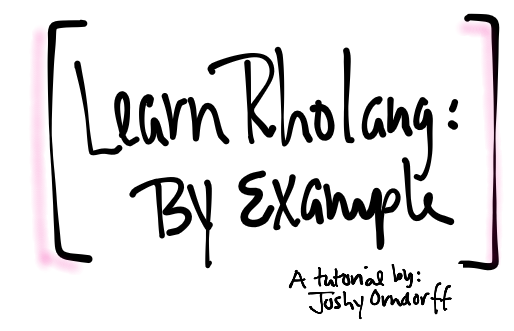 Learn Rholang:
By Example
A tutorial by:
Joshy Orndorff